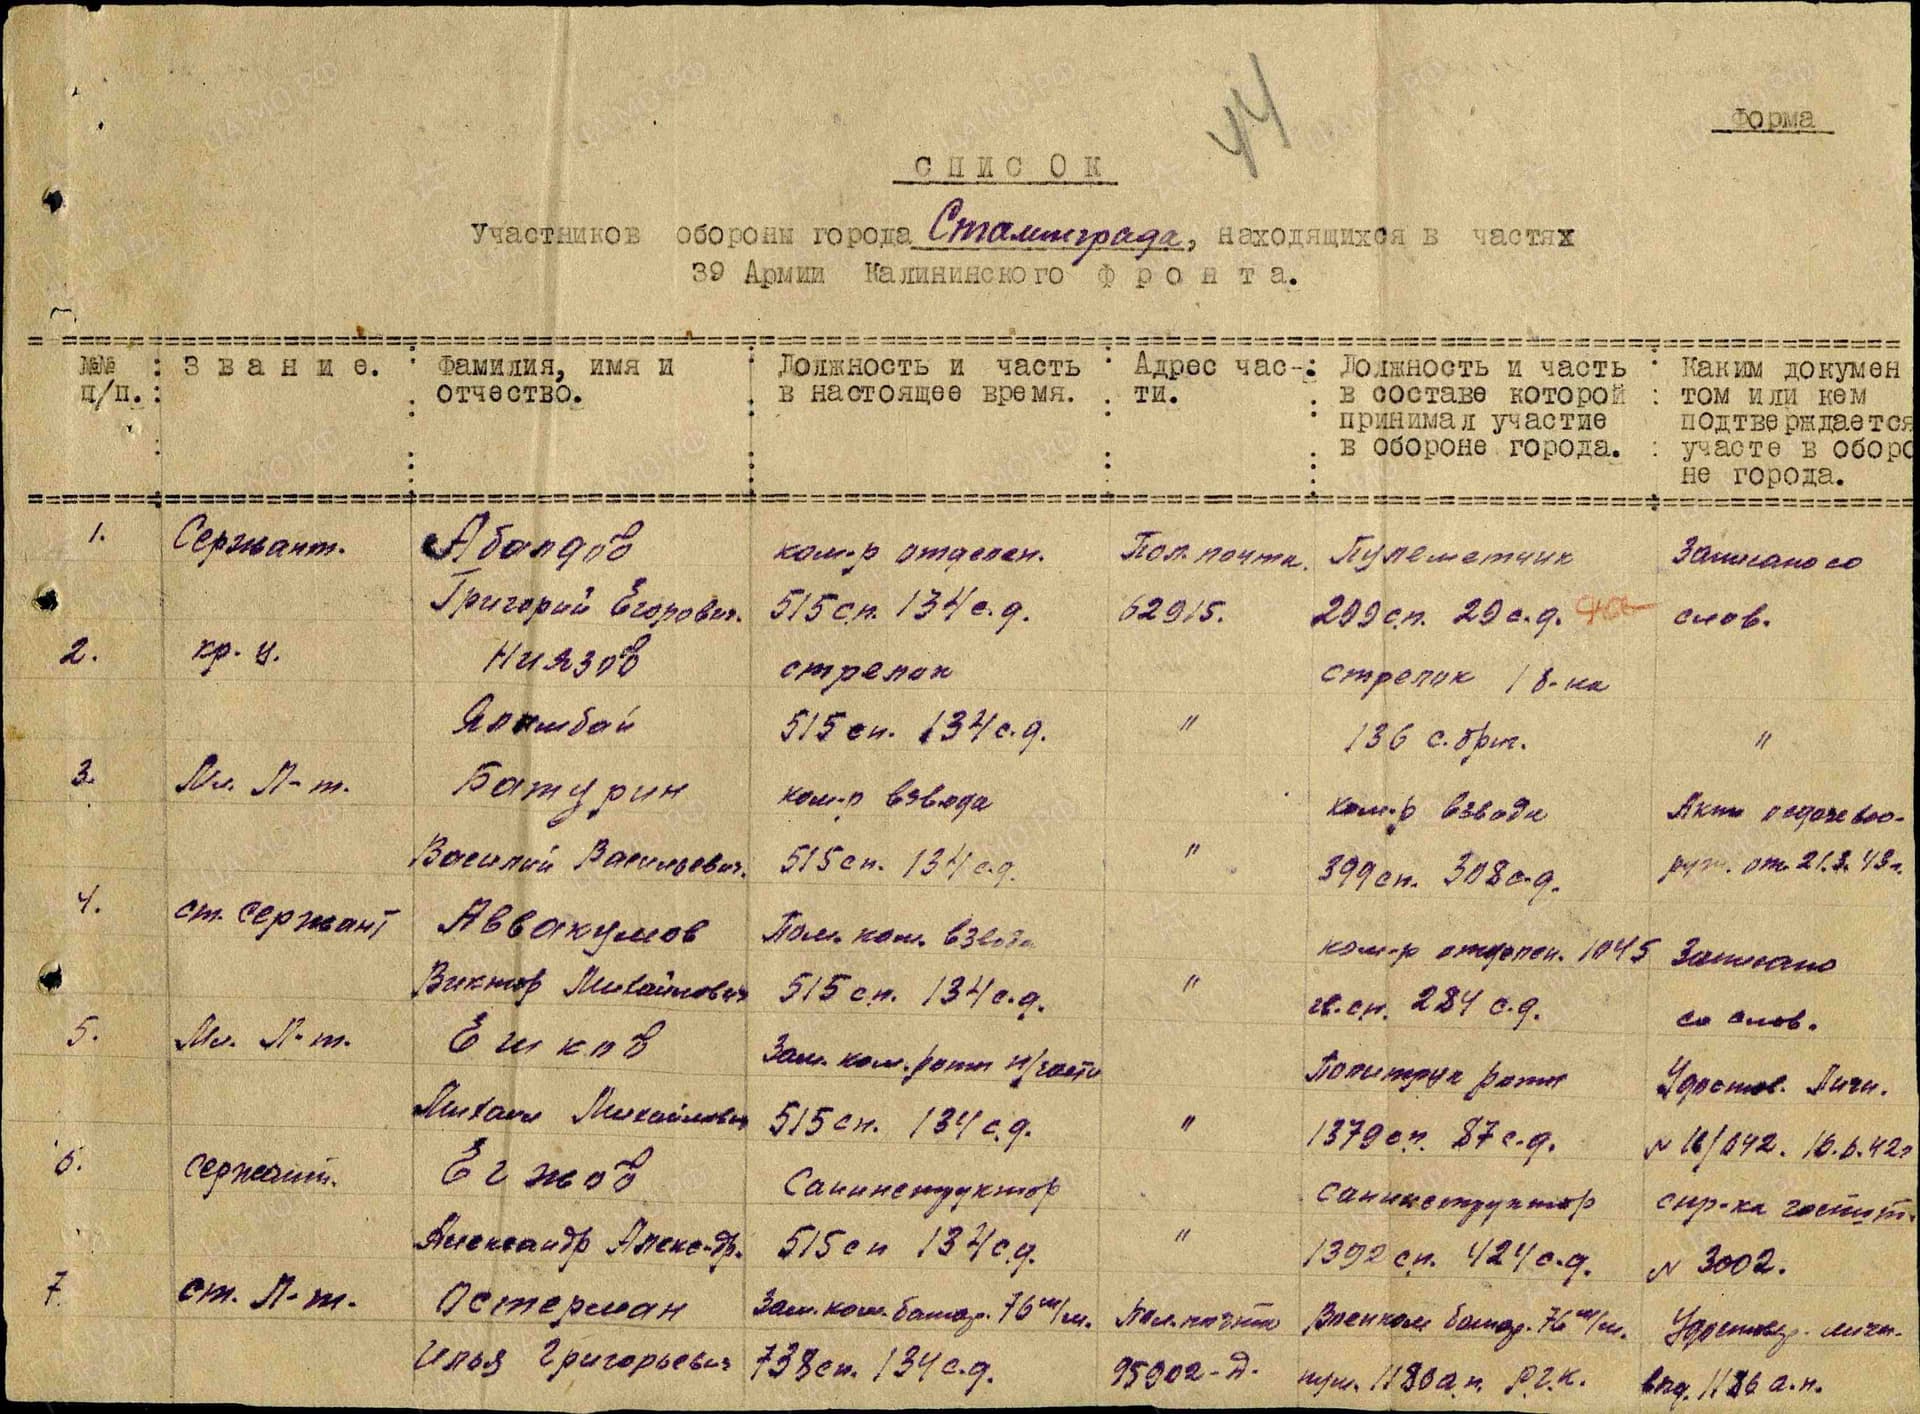 44
Форма
СПИСОК
Участников обороны города Сталинграда, находящихся в частях
39 Армии Калининского Фронта.
№№ п/п. : Звание. : Фамилия, имя и отчество. : Должность и часть в настоящее время. : Адрес части. : Должность и часть в составе которой принимал участие в обороне города. : Каким докумен том или кем подтверждается участе в оборо не города.
1. Сержант. Абалдов ком-р отделен. Пол. почта. Пулеметчик Записано со
Григорий Егорович. 515 сп. 134 с.д. 62915. 299 сп. 29 с.д. слов.
2. кр-ц. Ниязов стрелок стрелок 1 б-на
515 сп. 134 с.д. " 136 с. бриг. "
3. Мл. Л-т. Батурин ком-р взвода ком-р взвода Акт
Василий Васильевич. 515 сп. 134 с.д. " 399 сп. 308 с.д. от 21.3.43г.
4. ст. сержант Аввакумов Пом. ком. взвода ком-р отделен. 1045 Записано
Виктор Михайлович 515 сп. 134 с.д. " сп. 284 с.д. со слов.
5. Мл. Л-т. Ешков Зам. ком. роты п/части Политрук роты Удостов. Личн.
Михаил Михайлович 515 сп. 134 с.д. " 1379 сп. 87 с.д.
6. сержант. Егжов Санинструктор санинструктор спр-ка госпит.
Александр Алекс-др. 515 сп 134 с.д. " 1392 сп. 424 с.д. № 3002.
7. ст. Л-т. Остерман Зам. ком. батар. 76 м/м. Пол. почта Военком батар. 76 м/м. Удостовер. личн.
Илья Григорьевич 738 сп. 134 с.д. 95902-Д. 1186 а.п. Р.Г.К. выд. 1186 а.п.
ЦАМО.РФ